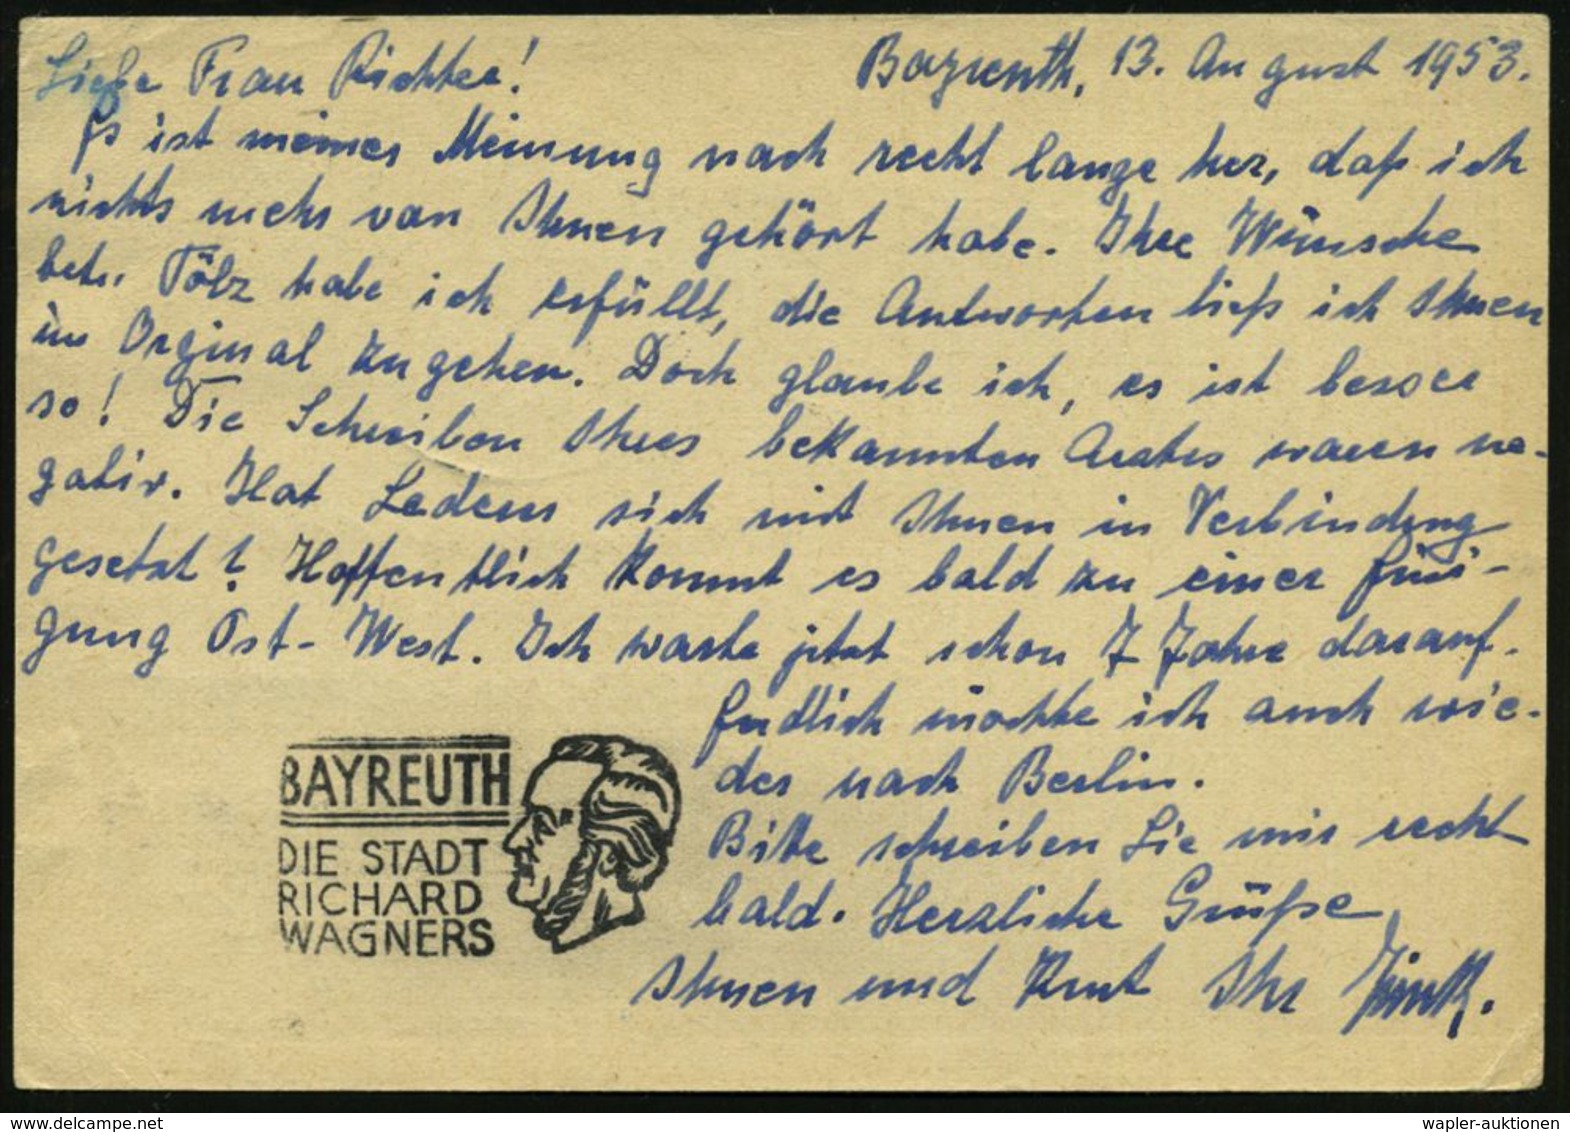 Liebe Frau Richter! Bayreuth, 13. August 1953.
Es ist meiner Meinung nach recht lange her, daß ich
nichts mehr von Ihnen gehört habe. Ihre Wünsche
betr. Tölz habe ich erfüllt, die Antworten ließ ich Ihnen
im Orginal zugehen. Doch glaube ich, es ist besser
so! Die Schreiben Ihres bekannten Arztes waren ne-
gativ. Hat sich mit Ihnen in Verbindung
gesetzt? Hoffentlich kommt es bald zu einer Eini-
gung Ost-West. Ich warte jetzt schon 7 Jahre darauf.
Endlich möchte ich auch wie-
der nach Berlin.
Bitte schreiben Sie mir recht
bald. Herzliche Grüße
Ihnen und Kurt Ihr
BAYREUTH
DIE STADT
RICHARD
WAGNERS
wapler-auktionen